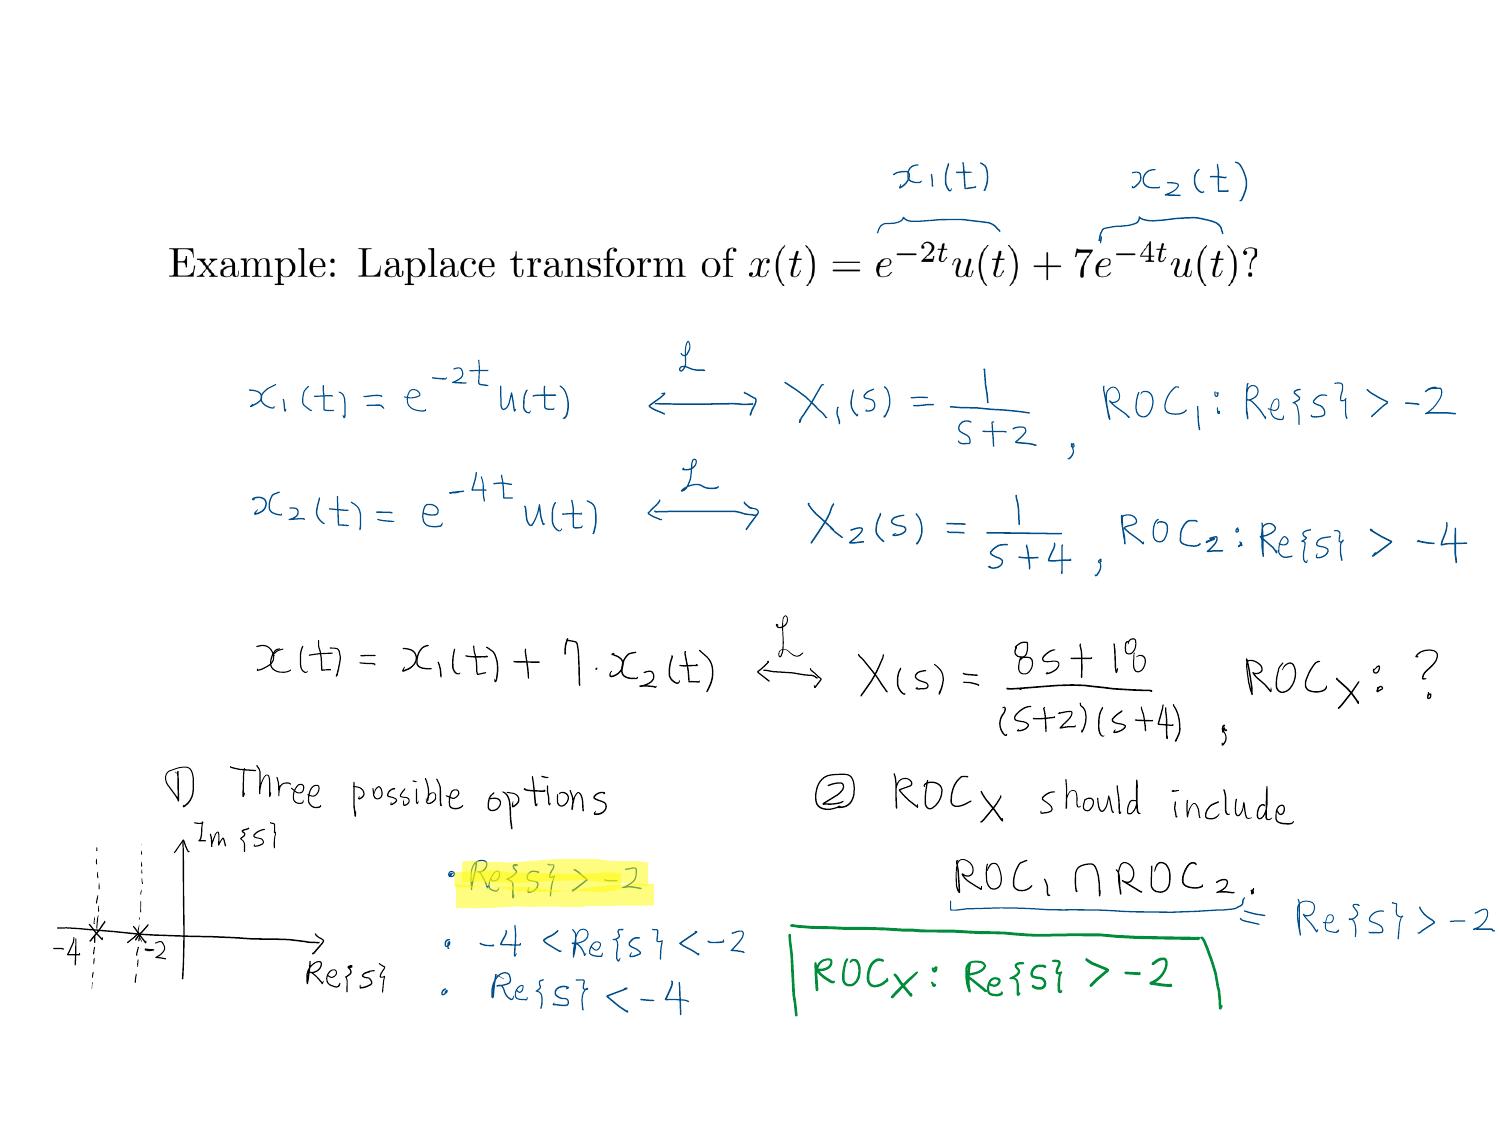 x₁(t) x₂(t)
Example: Laplace transform of x(t) = e⁻²ᵗu(t) + 7e⁻⁴ᵗu(t)?
x₁(t) = e⁻²ᵗ u(t) ⟷ℒ X₁(s) = 1/(s+2), ROC₁: Re{s} > -2
x₂(t) = e⁻⁴ᵗ u(t) ⟷ℒ X₂(s) = 1/(s+4), ROC₂: Re{s} > -4
x(t) = x₁(t) + 7·x₂(t) ⟷ℒ X(s) = (8s+18)/((s+2)(s+4)), ROCₓ: ?
① Three possible options
Im{s}
-4
-2
Re{s}
• Re{s} > -2
• -4 < Re{s} < -2
• Re{s} < -4
② ROCₓ should include
ROC₁ ∩ ROC₂.
= Re{s} > -2
ROCₓ: Re{s} > -2